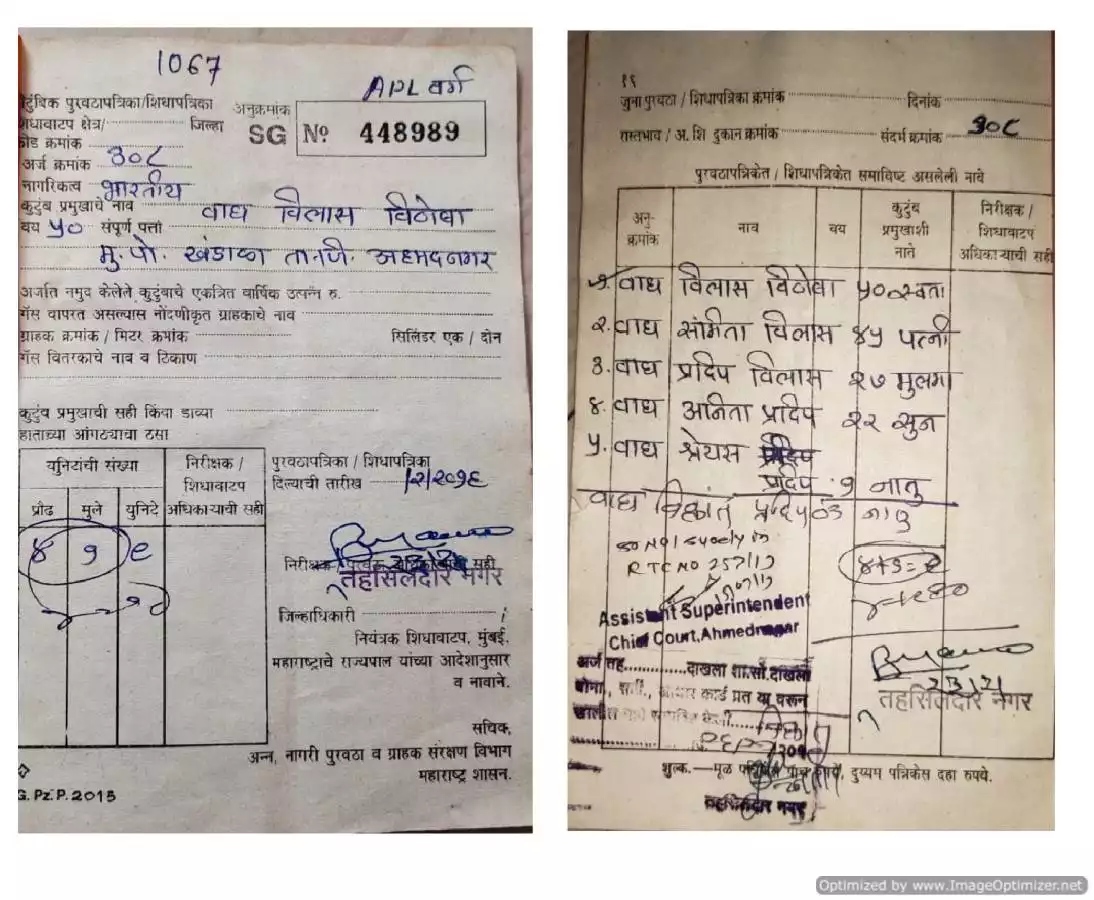 1067
APL वर्ग
कौटुंबिक पुरवठापत्रिका/शिधापत्रिका
अनुक्रमांक
SG Nº 448989
शिधावाटप क्षेत्र/ जिल्हा
कोड क्रमांक
अर्ज क्रमांक ३०८
नागरिकत्व भारतीय
कुटुंब प्रमुखाचे नाव वाघ विलास विठोबा
वय ५० संपूर्ण पत्ता
मु.पो. खंडाळा ता.जि. अहमदनगर
अर्जात नमुद केलेले कुटुंबाचे एकत्रित वार्षिक उत्पन्न रु.
गॅस वापरत असल्यास नोंदणीकृत ग्राहकाचे नाव
ग्राहक क्रमांक / मिटर क्रमांक सिलिंडर एक / दोन
गॅस वितरकाचे नाव व ठिकाण
कुटुंब प्रमुखाची सही किंवा डाव्या
हाताच्या आंगठ्याचा ठसा
युनिटांची संख्या
निरीक्षक / शिधावाटप अधिकाऱ्याची सही
प्रौढ मुले युनिटे
४ १ ९
पुरवठापत्रिका / शिधापत्रिका
दिल्याची तारीख /२/२०१६
तहसिलदार नगर
जिल्हाधिकारी
नियंत्रक शिधावाटप, मुंबई.
महाराष्ट्राचे राज्यपाल यांच्या आदेशानुसार
व नावाने.
सचिव,
अन्न, नागरी पुरवठा व ग्राहक संरक्षण विभाग
महाराष्ट्र शासन.
G. Pz. P. 2015
१६
जुना पुरवठा / शिधापत्रिका क्रमांक दिनांक
रास्तभाव / अ. शि दुकान क्रमांक संदर्भ क्रमांक ३०८
पुरवठापत्रिकेत / शिधापत्रिकेत समाविष्ट असलेली नावे
अनु-क्रमांक नाव वय कुटुंब प्रमुखाशी नाते निरीक्षक / शिधावाटप अधिकाऱ्याची सही
१. वाघ विलास विठोबा ५० स्वता
२. वाघ संगिता विलास ४५ पत्नी
३. वाघ प्रदिप विलास २७ मुलगा
४. वाघ अनिता प्रदिप २२ सुन
५. वाघ श्रेयस
प्रदिप १ नातु
वाघ विक्रांत प्रदिप ०३ नातु
RTC NO 257/17
Assistant Superintendent
Chief Court, Ahmednagar
अर्ज तह दाखला शा.सो.दाखला
आधार कार्ड प्रत या वरून
23/2/
तहसिलदार नगर
शुल्क.—मूळ पत्रिकेस पाच रुपये, दुय्यम पत्रिकेस दहा रुपये.
तहसिलदार नगर
Optimized by www.ImageOptimizer.net